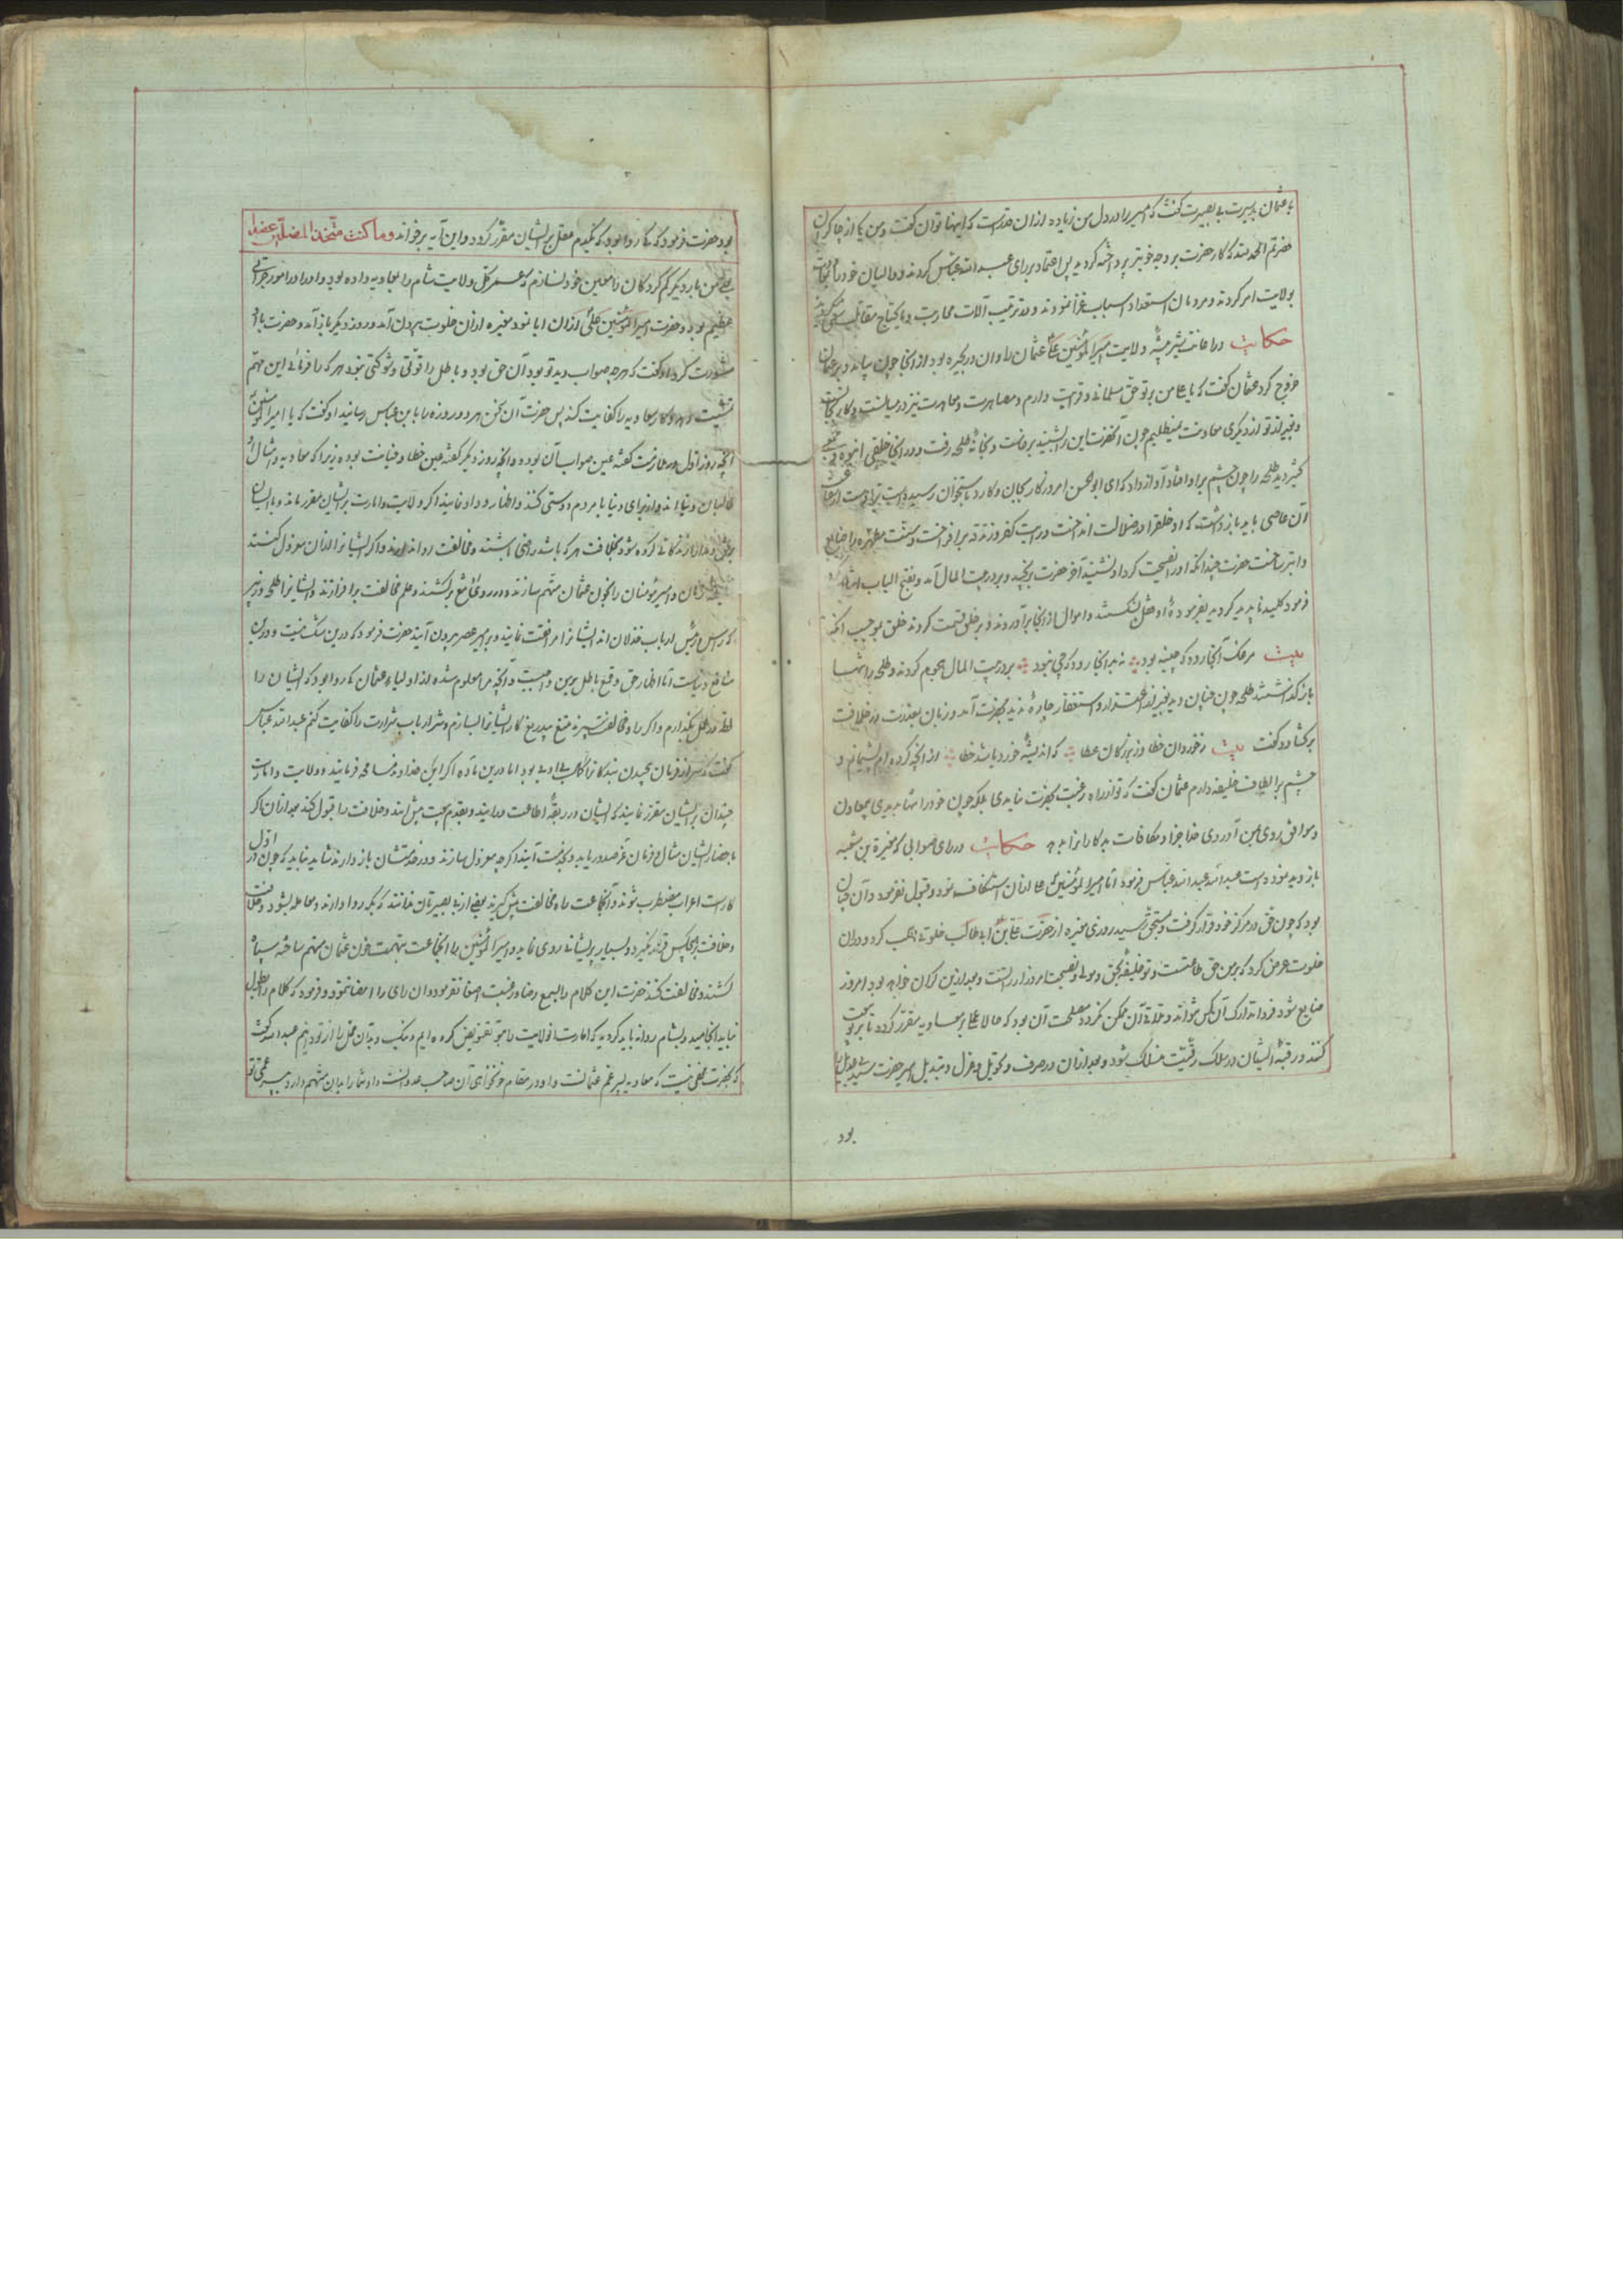 با عثمان بدسیرت بی بصیرت گفت که امیر را در دل من زیاده ازان قدرست که اینها توان گفت و من یکی از چاکران
حضرتم الحمد لله که کار حضرت بر وجه خوبتر پرداخته کردید پس اعتماد بر رای عبد الله عباس کردند و والیان خود را
بولایت امر کردند و مردمان استعداد اسباب غزا نمودند و در ترتیب آلات محاربت و ما یحتاج مقاتلت
حکایت در اعانت بیشه ولایت امیر المؤمنین علی عثمان را و ان در بحیره بود از انجا چون بیامد و بر عثمان
خروج کرد عثمان گفت که یا علی من بر تو حق مسلمانی و قرابت دارم و مصاهرت و معاهرت نیز در میانست
و بغیر از تو از دیگری معاونت نمیطلبیم چون آنحضرت این را شنید برخاست و بخانه طلحه رفت و در انجا خلقی انبوه
طلحه را چون چشم بر او افتاد آواز داد که ای ابو الحسن امروز کار بجان و کارد باستخوان رسیده است
آن عاصی باید بازداشت که او خلق را در ضلالت انداخت و رایت کفر و زندقه برافراخت و سنت مطهره را ضایع
و ابتر ساخت حضرت چندانکه او را نصیحت کرد او نشنید آخر حضرت برنجید و بر در بیت المال آمد و بفتح الباب اشاره
فرمود کلید ناپدید کردید بفرموده او قفل بشکستند و اموال از انجا برآوردند و بر خلق قسمت کردند خلق بموجب آنکه
بیت مرغک آنجا رود که چینه بود نه بد انجا رود که چی نبود بر در بیت المال هجوم کردند و طلحه را تنها
باز گذاشتند طلحه چون چنان دید بغیر از اعتذار و استغفار چاره ندید بحضرت آمد و زبان بعذرت در خلافت
برکشاد و گفت بیت ز خوردان خطا و ز بزرگان عطا که اندیشه خورد باشد خطا از آنچه کرده ام پشیمانم و
چشم بر الطاف خلیفه دارم عثمان گفت که تو از راه رغبت بحضرت نیامدی بلکه چون خود را تنها بدیدی بی معاون
و موافق روی بمن آوردی خدا جزا و مکافات بدکاران بدهد حکایت در رای صوابی که مغیره بن شعبه
بازدیده بود درست عبد الله عبد الله عباس فرمود اما امیر المؤمنین علی ازان استنکاف نمود و قبول نفرمود و آن چنان
بود که چون حق در مرکز خود قرار گرفت و بمستحق رسید روزی مغیره از حضرت علی بن ابی طالب خلوتی طلب کرد و در ان
خلوت عرض کرد که بر من حق طاعتست و تو خلیفه بحق و مولی و نصیحت امروز ارزانست و بعد ازین گران خواهد بود امروز
ضایع شود فردا تدارک آن کس نتواند و تلافی آن ممکن نکردد مصلحت آن بود که حالا عملی بر معاویه مقرر گردد تا بر تو بیعت
کنند و رقبه ایشان در سلک رقیت منسلک شود و بعد ازان در صرف و تحویل و عزل و تبدیل امیر حضرت
بود
بود حضرت فرمود که کی روا بود که بگیدم معقل بر ایشان مقرر گردد و این آیه برخواند وما کنت متخذ المضلین عضدا
من بار دیگر گم کردگان را معین خود نسازم که عمر کل ولایت شام را بمعاویه داده بود و او را در امور جرأتی
عظیم بود و حضرت امیر المؤمنین علی ازان ابا نمود مغیره ازان خلوت برون آمد و روز دیگر باز آمد و حضرت با او
مشورت کرد او گفت که هر چه صواب دید تو بود آن حق بود و باطل را قوتی و شوکتی نبود هر که را فرمایی این مهم
و کار معاویه را کفایت کند پس حضرت آن سخن هر دو روزه را بابن عباس رسانید او گفت که یا امیر المؤمنین
آنچه روز اول در ملازمت گفته عین صواب آن بود و آنچه روز دیگر گفته عین خطا و خیانت بوده زیرا که معاویه و امثال او
طالبان دنیا اند و از برای دنیا با مردم دوستی کنند و اظهار وداد نمایند اگر ولایت و امارت بر ایشان مقرر ماند و با ایشان
برفق و مدارا زندگانی کرده شود بخلافت هر که باشد راضی باشند و مخالفت روا ندارند و اگر ایشانرا ازان معزول کنند
و امیر مؤمنان را بخون عثمان متهم سازند و دروی تیغ برکشند و علم مخالفت برافرازند و ایشانرا طلحه و زبیر
که راس و رئیس ارباب خذلان اند ایشانرا مرافقت نمایند و بر میر عصر بیرون آیند حضرت فرمود که درین شک نیست و درین
منافع دنیاست اما اظهار حق و قمع باطل برین واجبست و آنچه مرا معلوم شده از اولیاء عثمان کی روا بود که ایشان را
لحظه در عمل بگذارم و اگر راه مخالفت سپرند بتیغ بیدریغ کار ایشانرا بسازم و شر ارباب شرارت را کفایت کنم عبد الله عباس
گفت که سر از فرمان پیچیدن بندکانرا کار بی ادبی بود اما درین ماده اگر اینکه خداوند مسامحه فرمایند و ولایت و امارت
چندان بر ایشان مقرر نمایند که ایشان در ربقه اطاعت درآیند و بقدم بیعت پیش آیند و خلافت را قبول کنند بعد ازان اگر
باحضار ایشان مثال فرمان عز صدور یابد و بخدمت آیند اگر چه معزول سازند و در خدمتشان باز دارند شاید نباید که چون اول
کارست اعراب مضطرب شوند و آنجماعت راه مخالفت پیش گیرند بعضی از بی بصیرتان خائنند که بکه روا دارند و معامله بشود و خلافت
و خلافت بر هیچکس قرار نگیرد و بسیار پریشانی روی نماید و امیر المؤمنین را انجماعت بتهمت خون عثمان متهم ساخته سپاه
کشند و مخالفت کنند حضرت این کلام را بسمع رضا و رغبت اصغا نفرمود و ان رای را امضا ننمود و فرمود که کلام را بطول
نباید انجامید و بشام روانه باید گردید که امارت انولایت را بتو تفویض کرده ایم و منکب و بدان عمل را از تو دانیم عبد الله گفت
که بحضرت مخفی نیست که معاویه پسر عم عثمانست و او در مقام خونخواهی آن صاحب عدوانست و او شما را بدان متهم دارد